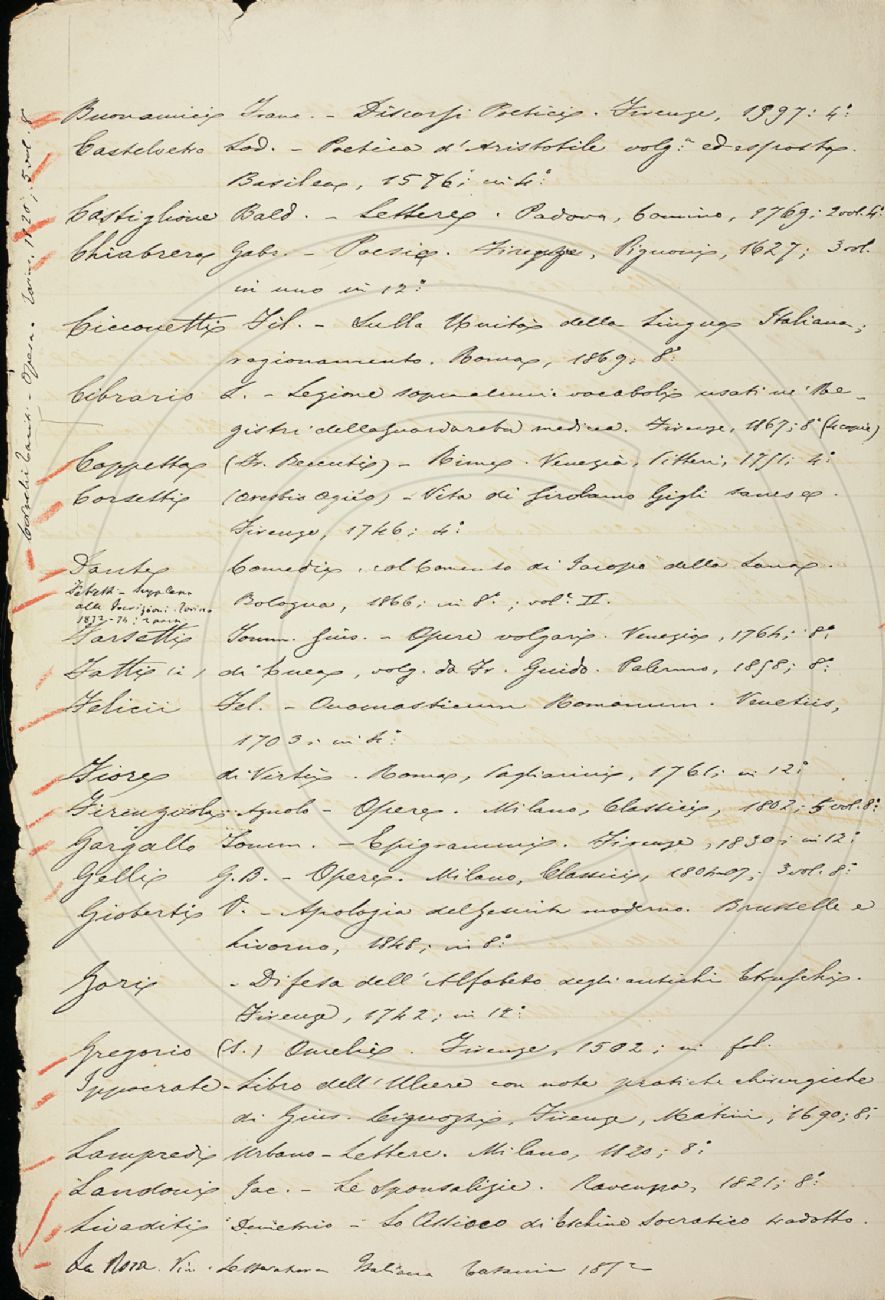 Buonamici Franc. - Discorsi Poetici. Firenze, 1597: 4º
Castelvetro Lod. - Poetica d'Aristotile volg.ª ed esposta.
Basilea, 1576; in 4º
Castiglione Bald. - Lettere. Padova, Comino, 1769; 2 vol. 4º
Chiabrera Gabr. - Poesie. Firenze, Pignoni, 1627; 3 vol.
in uno in 12º
Cicconetti Fil. - Sulla Unità della Lingua Italiana;
ragionamento. Roma, 1869; 8º
Cibrario L. - Lezione sopra alcuni vocaboli usati ne' Re-
gistri della Guardaroba medicea. Firenze, 1867; 8º (4 copie)
Coppetta (Fr. Beccuti) - Rime. Venezia, Pitteri, 1751; 4º
Corsetti (Oresbio Agieo) - Vita di Girolamo Gigli sanese.
Firenze, 1746; 4º
Dante Comedia, col Comento di Jacopo della Lana.
Bologna, 1866; in 8º; vol. II.
Fabretti - Supplem.
alle Iscrizioni. Torino
1872-74;
Farsetti Tomm. Gius. - Opere volgari. Venezia, 1764; 8º
Fatti (i) di Enea, volg. da Fr. Guido. Palermo, 1858; 8º
Felicii Fel. - Onomasticum Romanum. Venetiis,
1703; in 4º
Fiore di Virtù. Roma, Pagliarini, 1761; in 12º
Firenzuola Agnolo - Opere. Milano, Classici, 1802; 5 vol. 8º
Gargallo Tomm. - Epigrammi. Firenze, 1830; in 12º
Gelli G.B. - Opere. Milano, Classici, 1804-07; 3 vol. 8º
Gioberti V. - Apologia del Gesuita moderno. Brusselle e
Livorno, 1848; in 8º
Gori - Difesa dell'Alfabeto degli antichi Etruschi.
Firenze, 1742; in 12º
Gregorio (S.) Omelie. Firenze, 1502; in fol.
Ippocrate - Libro dell'Ulcere con note pratiche chirurgiche
di Gius. Cignozzi, Firenze, Matini, 1690; 8º
Lampredi Urbano - Lettere. Milano, 1820; 8º
Landoni Jac. - Le Sponsalizie. Ravenna, 1821; 8º
Livaditi Demetrio - Lo Assioco di Eschine Socratico tradotto.
La Noza Vin. Letteratura Italiana Catania 1872
- Opera. Torino, 1820; 5 vol. 8